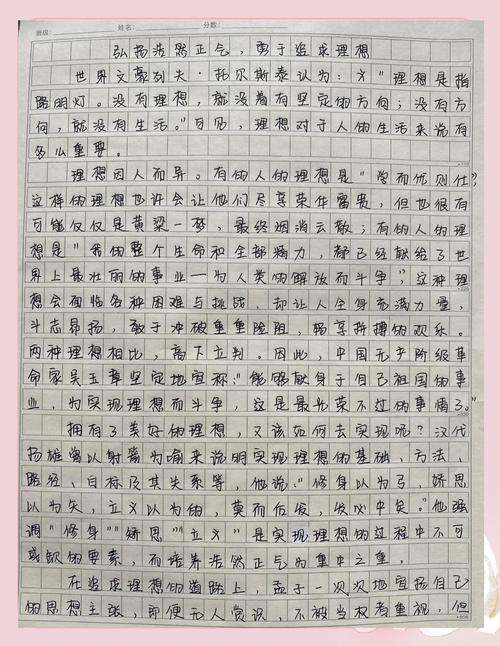 班级： 姓名： 分数：
弘扬浩然正气，勇于追求理想
世界文豪列夫·托尔斯泰认为：“理想是指
路明灯。没有理想，就没有坚定的方向；没有方
向，就没有生活。”可见，理想对于人的生活来说有
多么重要。
理想因人而异。有的人的理想是“学而优则仕”，
这样的理想也许会让他们尽享荣华富贵，但也很有
可能仅仅是黄粱一梦，最终烟消云散；有的人的理
想是“我的整个生命和全部精力，都已经献给了世
界上最壮丽的事业—为人类的解放而斗争”，这种理
想会面临各种困难与挑战，却让人全身充满力量，
斗志昂扬，敢于冲破重重险阻，畅享拼搏的欢乐。
两种理想相比，高下立判。因此，中国无产阶级革
命家吴玉章坚定地宣称：“能够献身于自己祖国的事
业，为实现理想而斗争，这是最光荣不过的事情了。”
拥有了美好的理想，又该如何去实现呢？汉代
扬雄曾以射箭为喻来说明实现理想的基础、方法、
路径、目标及其关系等，他说：“修身以为弓，矫思
以为矢，立义以为的，奠而后发，发必中矣。”他强
调“修身”“矫思”“立义”是实现理想的过程中不可
或缺的要素，而培养浩然正气为重中之重。
在追求理想的道路上，孟子一次次地宣扬自己
的思想主张，即便无人赏识，不被当权者重视，但